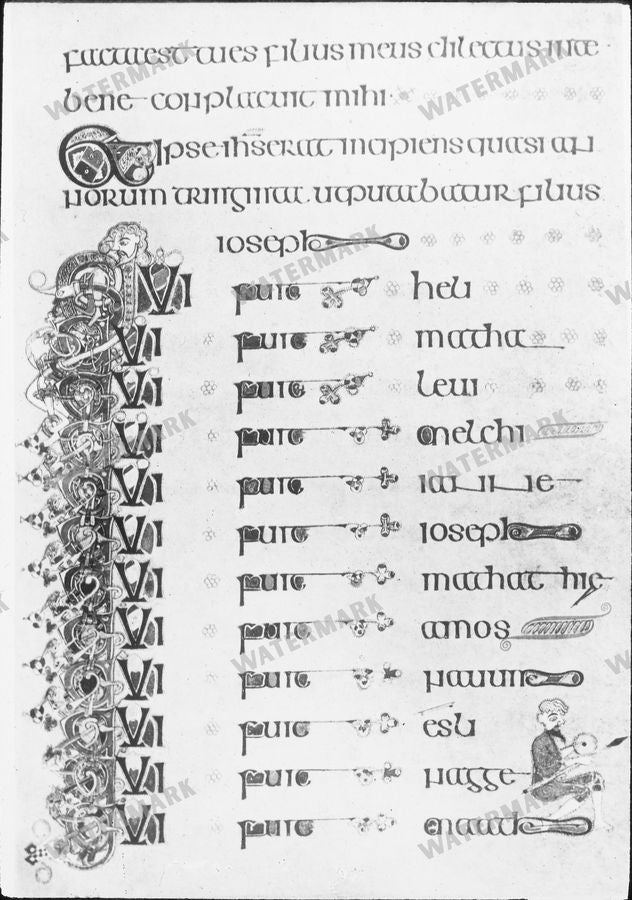 facta est tu es filius meus dilectus in te
bene conplacuit mihi
Et ipse ihs erat incipiens quasi an
norum triginta ut putabatur filius
ioseph
QUI fuit heli
QUI fuit matha
QUI fuit levi
QUI fuit melchi
QUI fuit iannae
QUI fuit ioseph
QUI fuit mathathie
QUI fuit amos
QUI fuit naum
QUI fuit esli
QUI fuit nagge
QUI fuit maad
WATERMARK